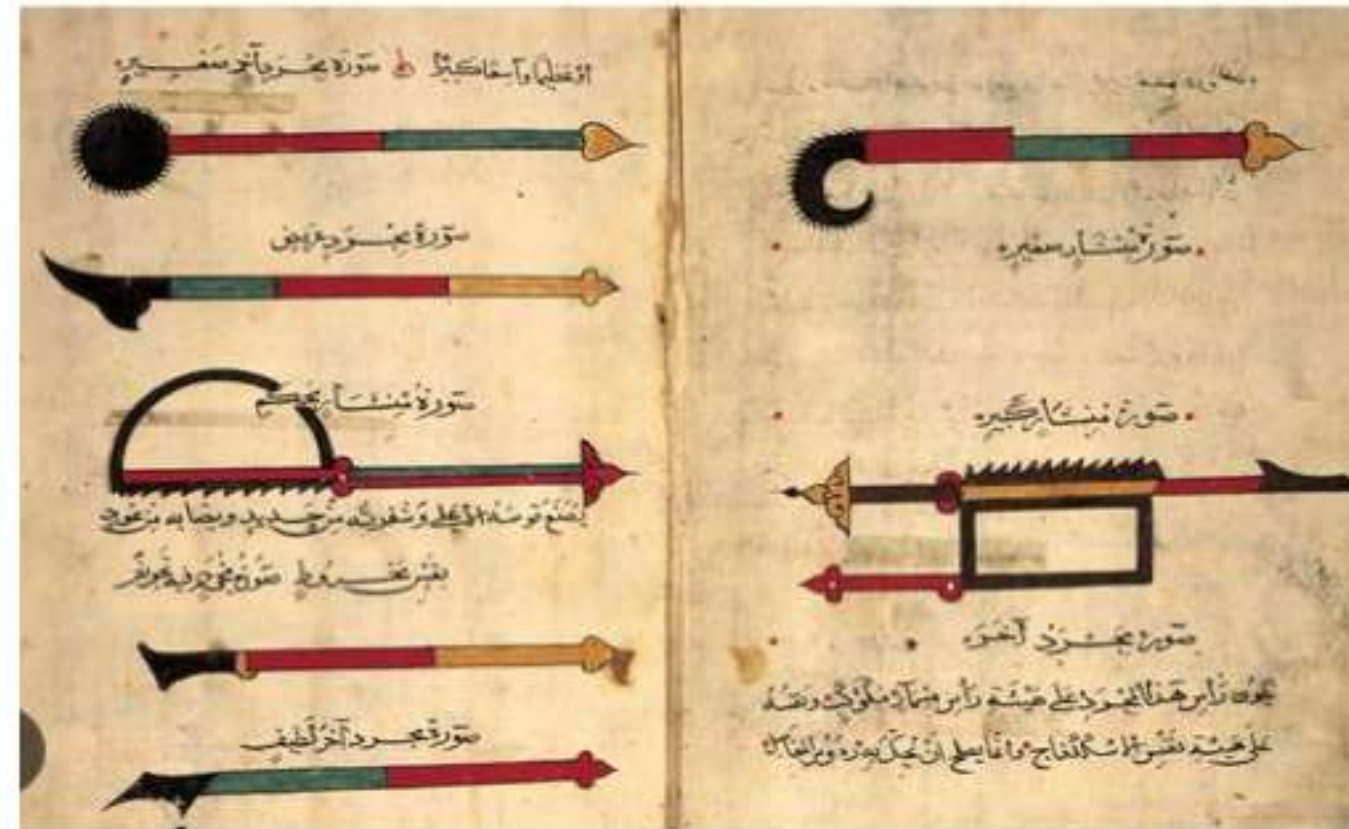 صورة منشار صغيره
صورة منشار كبيره
صورة مجرد آخر
يكون رأس هذا المجرد على هيئة رأس مسمار مكوكب ونقشه
على هيئة نقش الاسكلفاج وانما يصلح ان يحك به رؤوس المفاصل
او عظيما واسعا كبيرا صورة مجرد آخر صغيره
صورة مجرد عريض
صورة منشار محكم
يصنع قوسه الاعلى وشفرته من حديد ونصابه من عود
بقس مخروط صورة مجرد فيه تجويف
صورة مجرد آخر لطيف